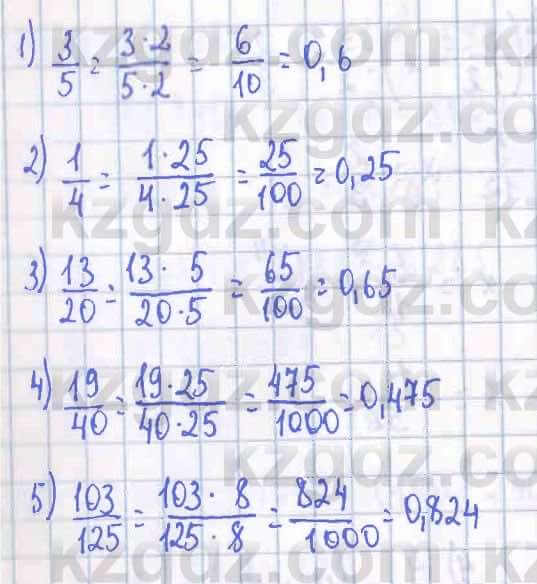 1) 3/5 = 3·2/5·2 = 6/10 = 0,6
2) 1/4 = 1·25/4·25 = 25/100 = 0,25
3) 13/20 = 13·5/20·5 = 65/100 = 0,65
4) 19/40 = 19·25/40·25 = 475/1000 = 0,475
5) 103/125 = 103·8/125·8 = 824/1000 = 0,824
kzgdz.com